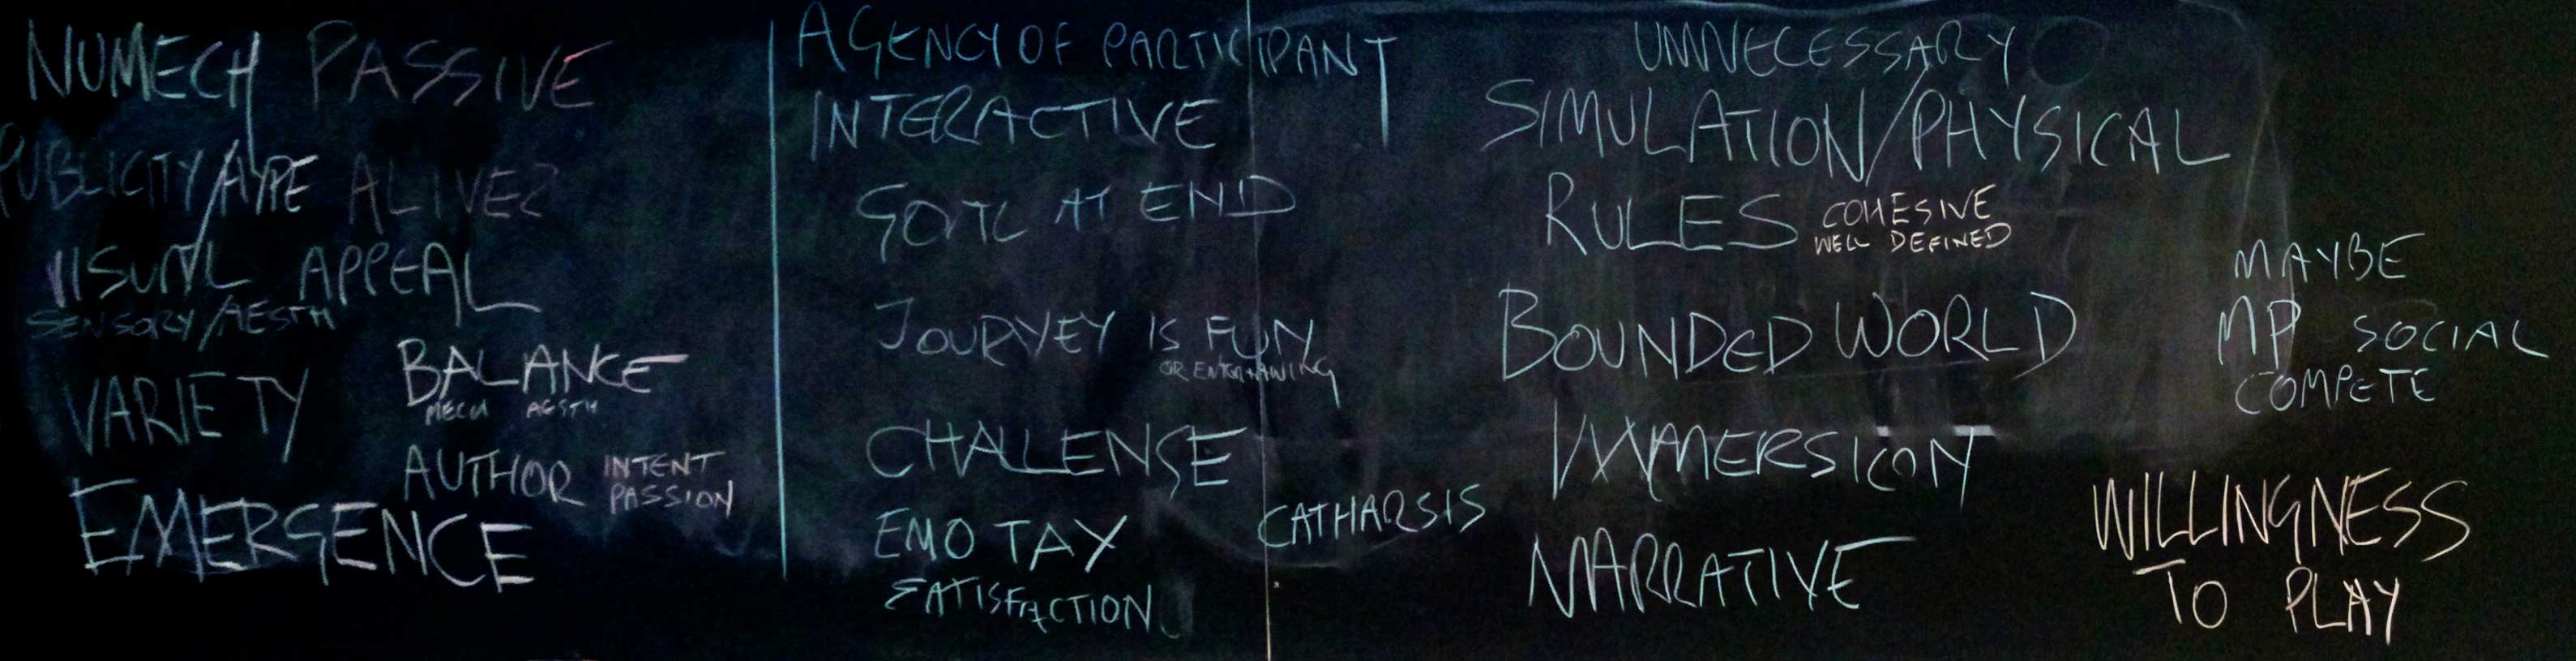 NUMECH PASSIVE
PUBLICITY/HYPE ALIVE?
VISUAL APPEAL
SENSORY/AESTH
VARIETY
BALANCE
MECH AESTH
AUTHOR INTENT
PASSION
EMERGENCE
AGENCY OF PARTICIPANT
INTERACTIVE
GOAL AT END
JOURYEY IS FUN
OR ENTERTAINING
CHALLENGE
EMO TAY
SATISFACTION
CATHARSIS
UNNECESSARY
SIMULATION/PHYSICAL
RULES COHESIVE
WELL DEFINED
BOUNDED WORLD
IMMERSION
NARRATIVE
MAYBE
MP SOCIAL
COMPETE
WILLINGNESS
TO PLAY